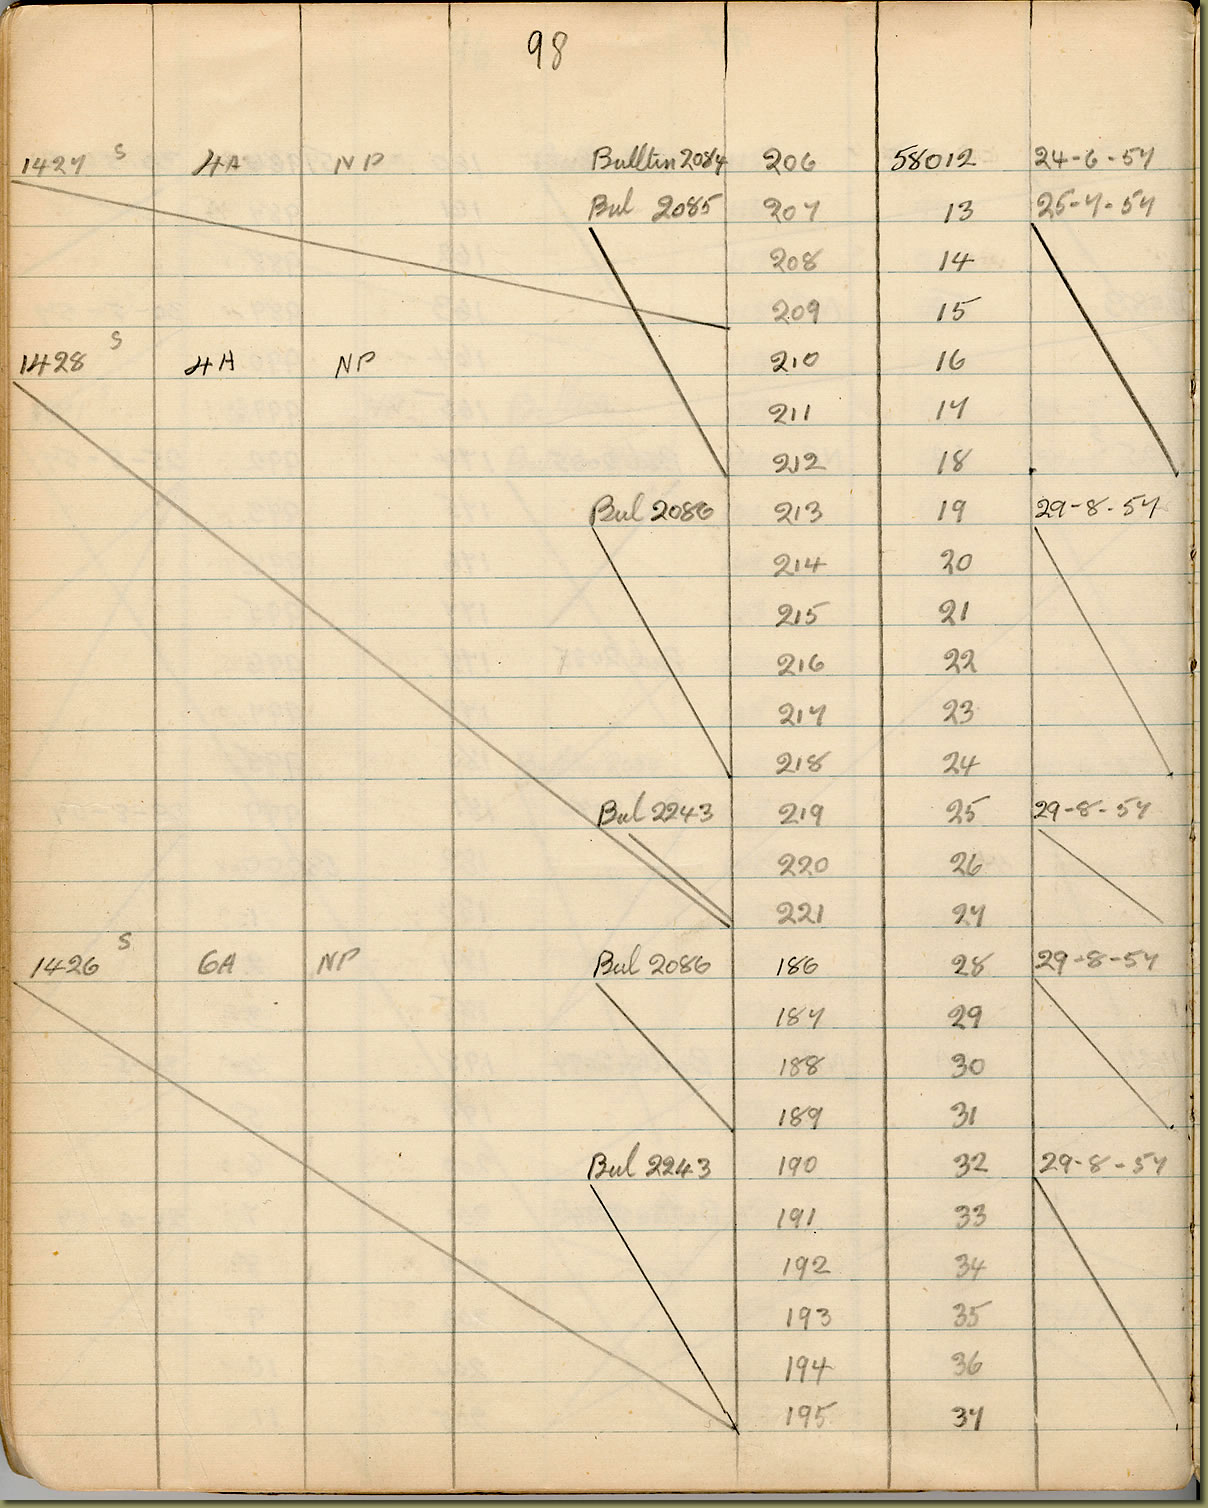 98
1427 S 4A NP Bulltin 2084 206 58012 24-6-57
Bul 2085 207 13 25-7-57
208 14
209 15
1428 S 4A NP 210 16
211 17
212 18
Bul 2086 213 19 29-8-57
214 20
215 21
216 22
217 23
218 24
Bul 2243 219 25 29-8-57
220 26
221 27
1426 S 6A NP Bul 2086 186 28 29-8-57
187 29
188 30
189 31
Bul 2243 190 32 29-8-57
191 33
192 34
193 35
194 36
195 37